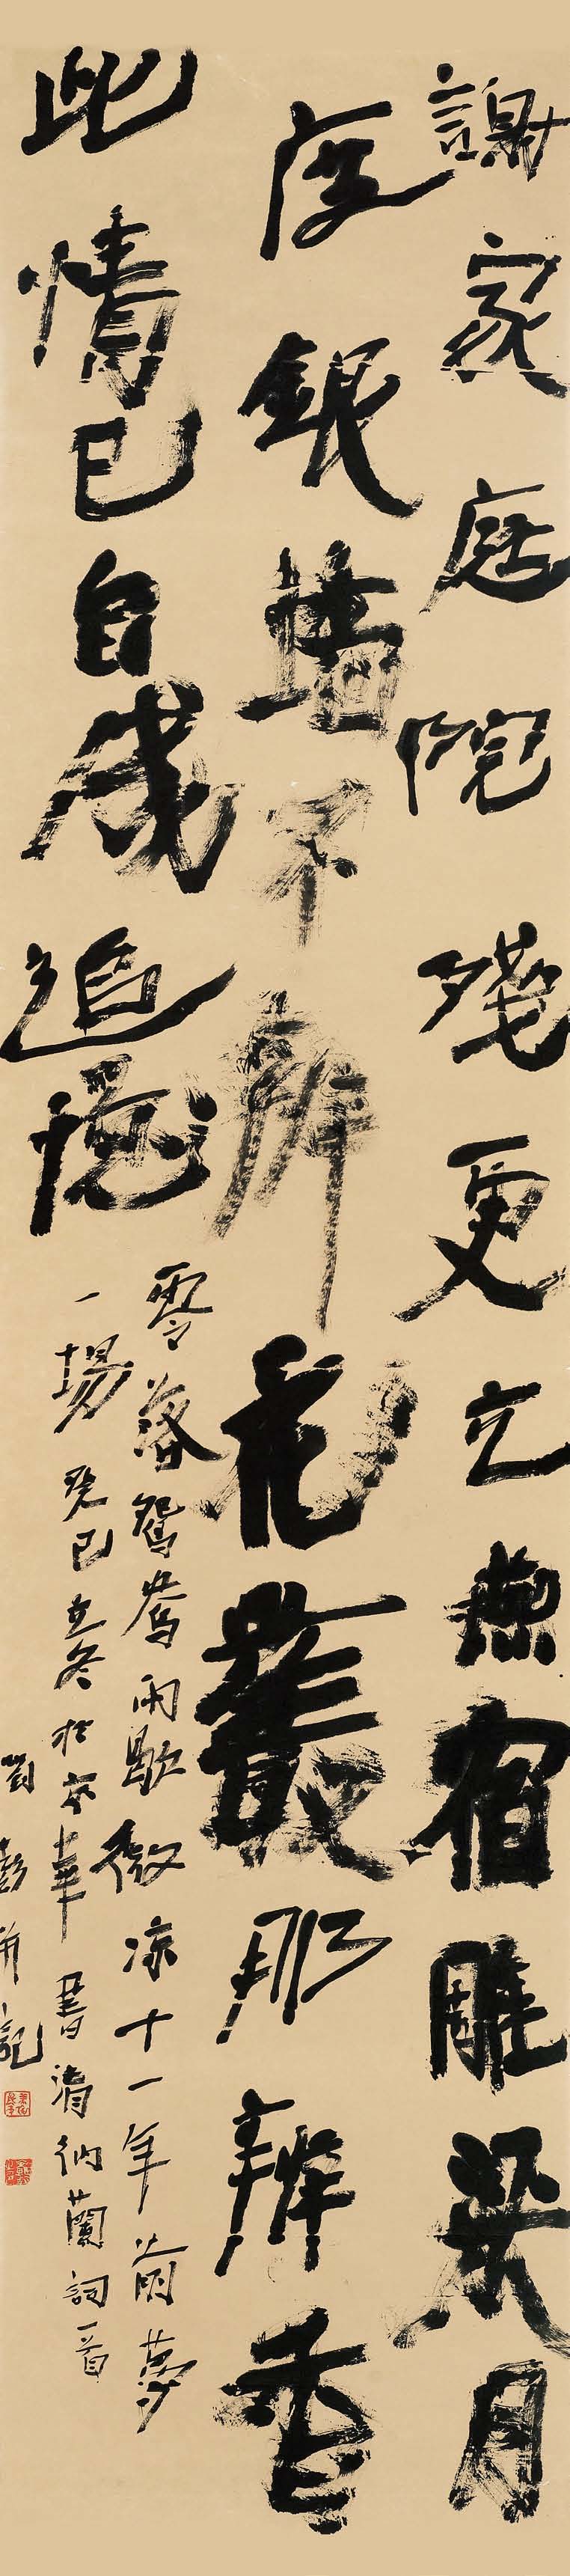 謝家庭院殘更立燕宿雕梁月
度銀墻不辨花叢那辨香
此情已自成追憶
零落鴛鴦雨歇微凉十一年前夢
一場 癸巳立冬於京華書清納蘭詞一首
劉彭并記